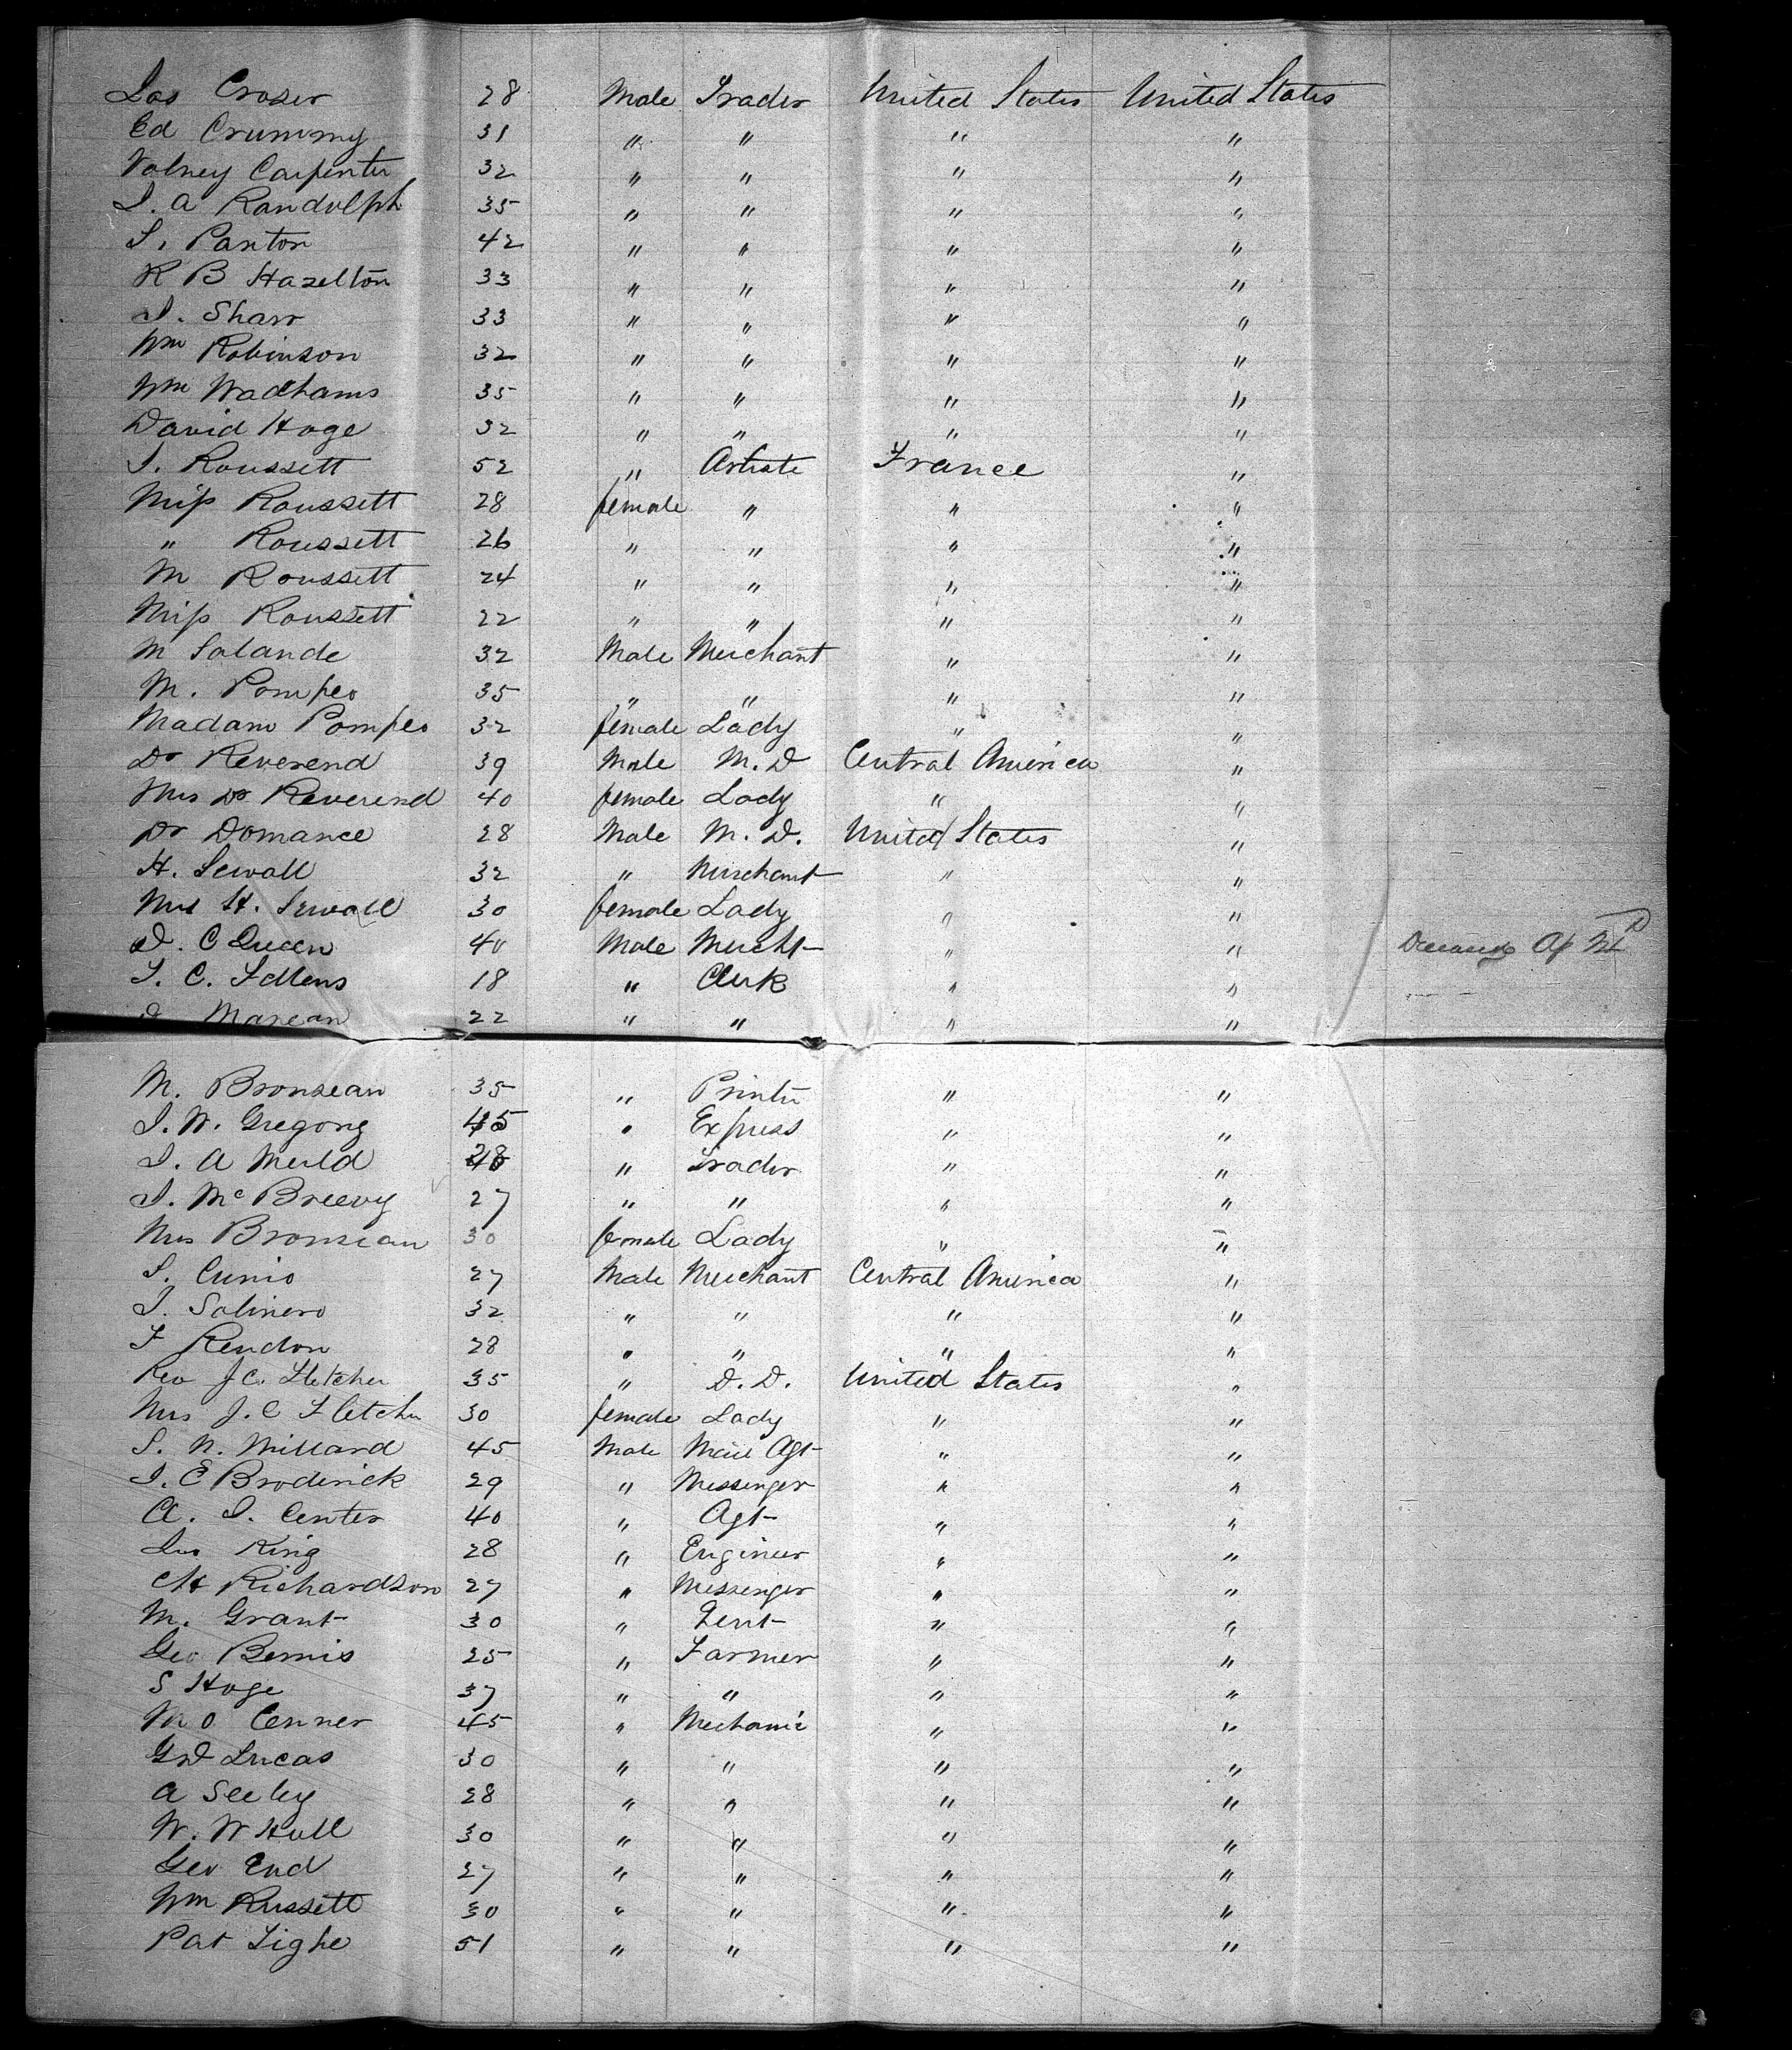 Jas Croser 28 Male Trader United States United States
Ed Crummy 31 " " " "
Volney Carpenter 32 " " " "
J. A Randolph 35 " " " "
S. Panton 42 " " " "
R B Hazelton 33 " " " "
J. Sharr 33 " " " "
Wm Robinson 32 " " " "
Wm Wadhams 35 " " " "
David Hoge 32 " " " "
J. Roussett 52 " Artiste France "
Miss Roussett 28 female " " "
" Roussett 26 " " " "
M Roussett 24 " " " "
Miss Roussett 22 " " " "
M Salande 32 Male Merchant " "
M. Pompeo 35 " " " "
Madam Pompeo 32 female Lady " "
Dr Reverend 39 Male M.D Central America "
Mrs Dr Reverend 40 female Lady " "
Dr Domance 28 Male M.D. United States "
H. Sewall 32 " Merchant " "
Mrs H. Sewall 30 female Lady " "
D. C Queen 40 Male Mercht " "
T. C. 18 " Clerk " "
Manean 22 " " " "
M. Bronsean 35 " Printer " "
J. W. Gregory 45 " Express " "
J. A Merld " Trader " "
J. McBreevy 27 " " " "
Mrs Bronsean 30 female Lady " "
S. Cunio 27 Male Merchant Central America "
J. Salinero 32 " " " "
F Rendon 28 " " " "
Rev J C. Fletcher 35 " D.D. United States "
Mrs J. C Fletcher 30 female Lady " "
S. N. Millard 45 Male Mail Agt " "
J. E Broderick 29 " Messenger " "
A. J. Center 40 " Agt " "
Jas King 28 " Engineer " "
CH Richardson 27 " Messenger " "
M. Grant 30 " Gent " "
Geo Bemis 25 " Farmer " "
S Hoge 37 " " " "
M O Conner 45 " Mechanic " "
G W Lucas 30 " " " "
A Seeley 28 " " " "
W. W Hull 30 " " " "
Geo End 27 " " " "
Wm Russett 30 " " " "
Pat Tighe 51 " " " "